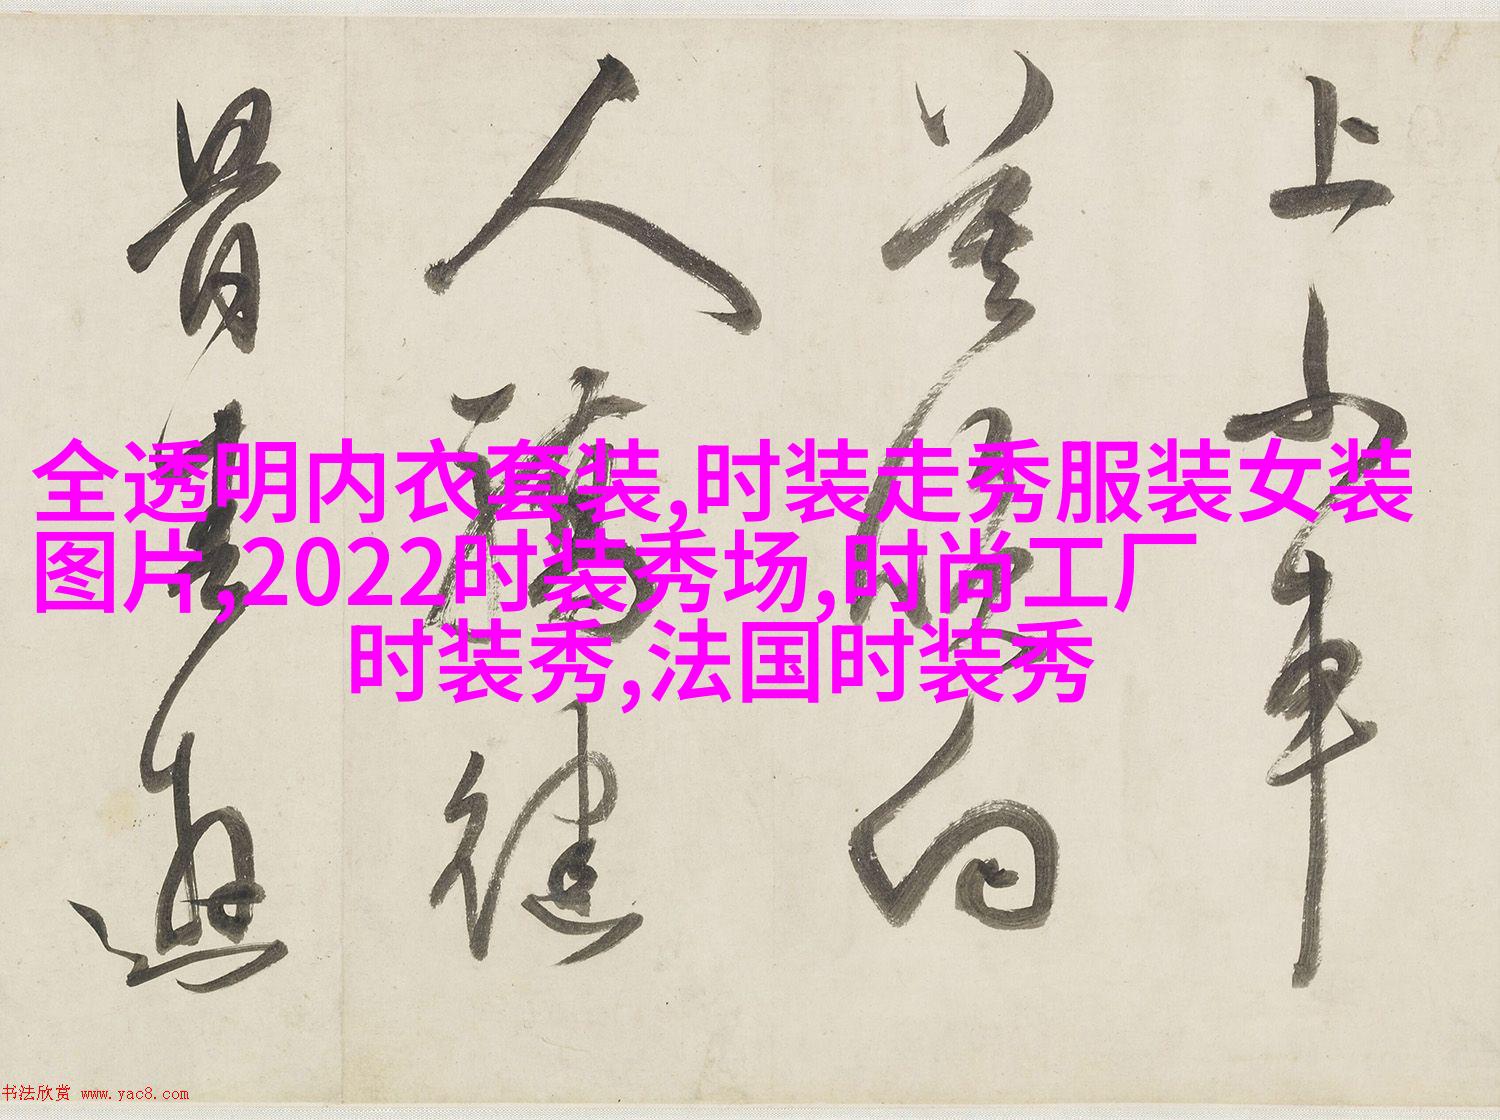 上小車
向
人
健
骨
全透明内衣套装,时装走秀服装女装
图片,2022时装秀场,时尚工厂
时装秀,法国时装秀
书法欣赏 www.yac8.com